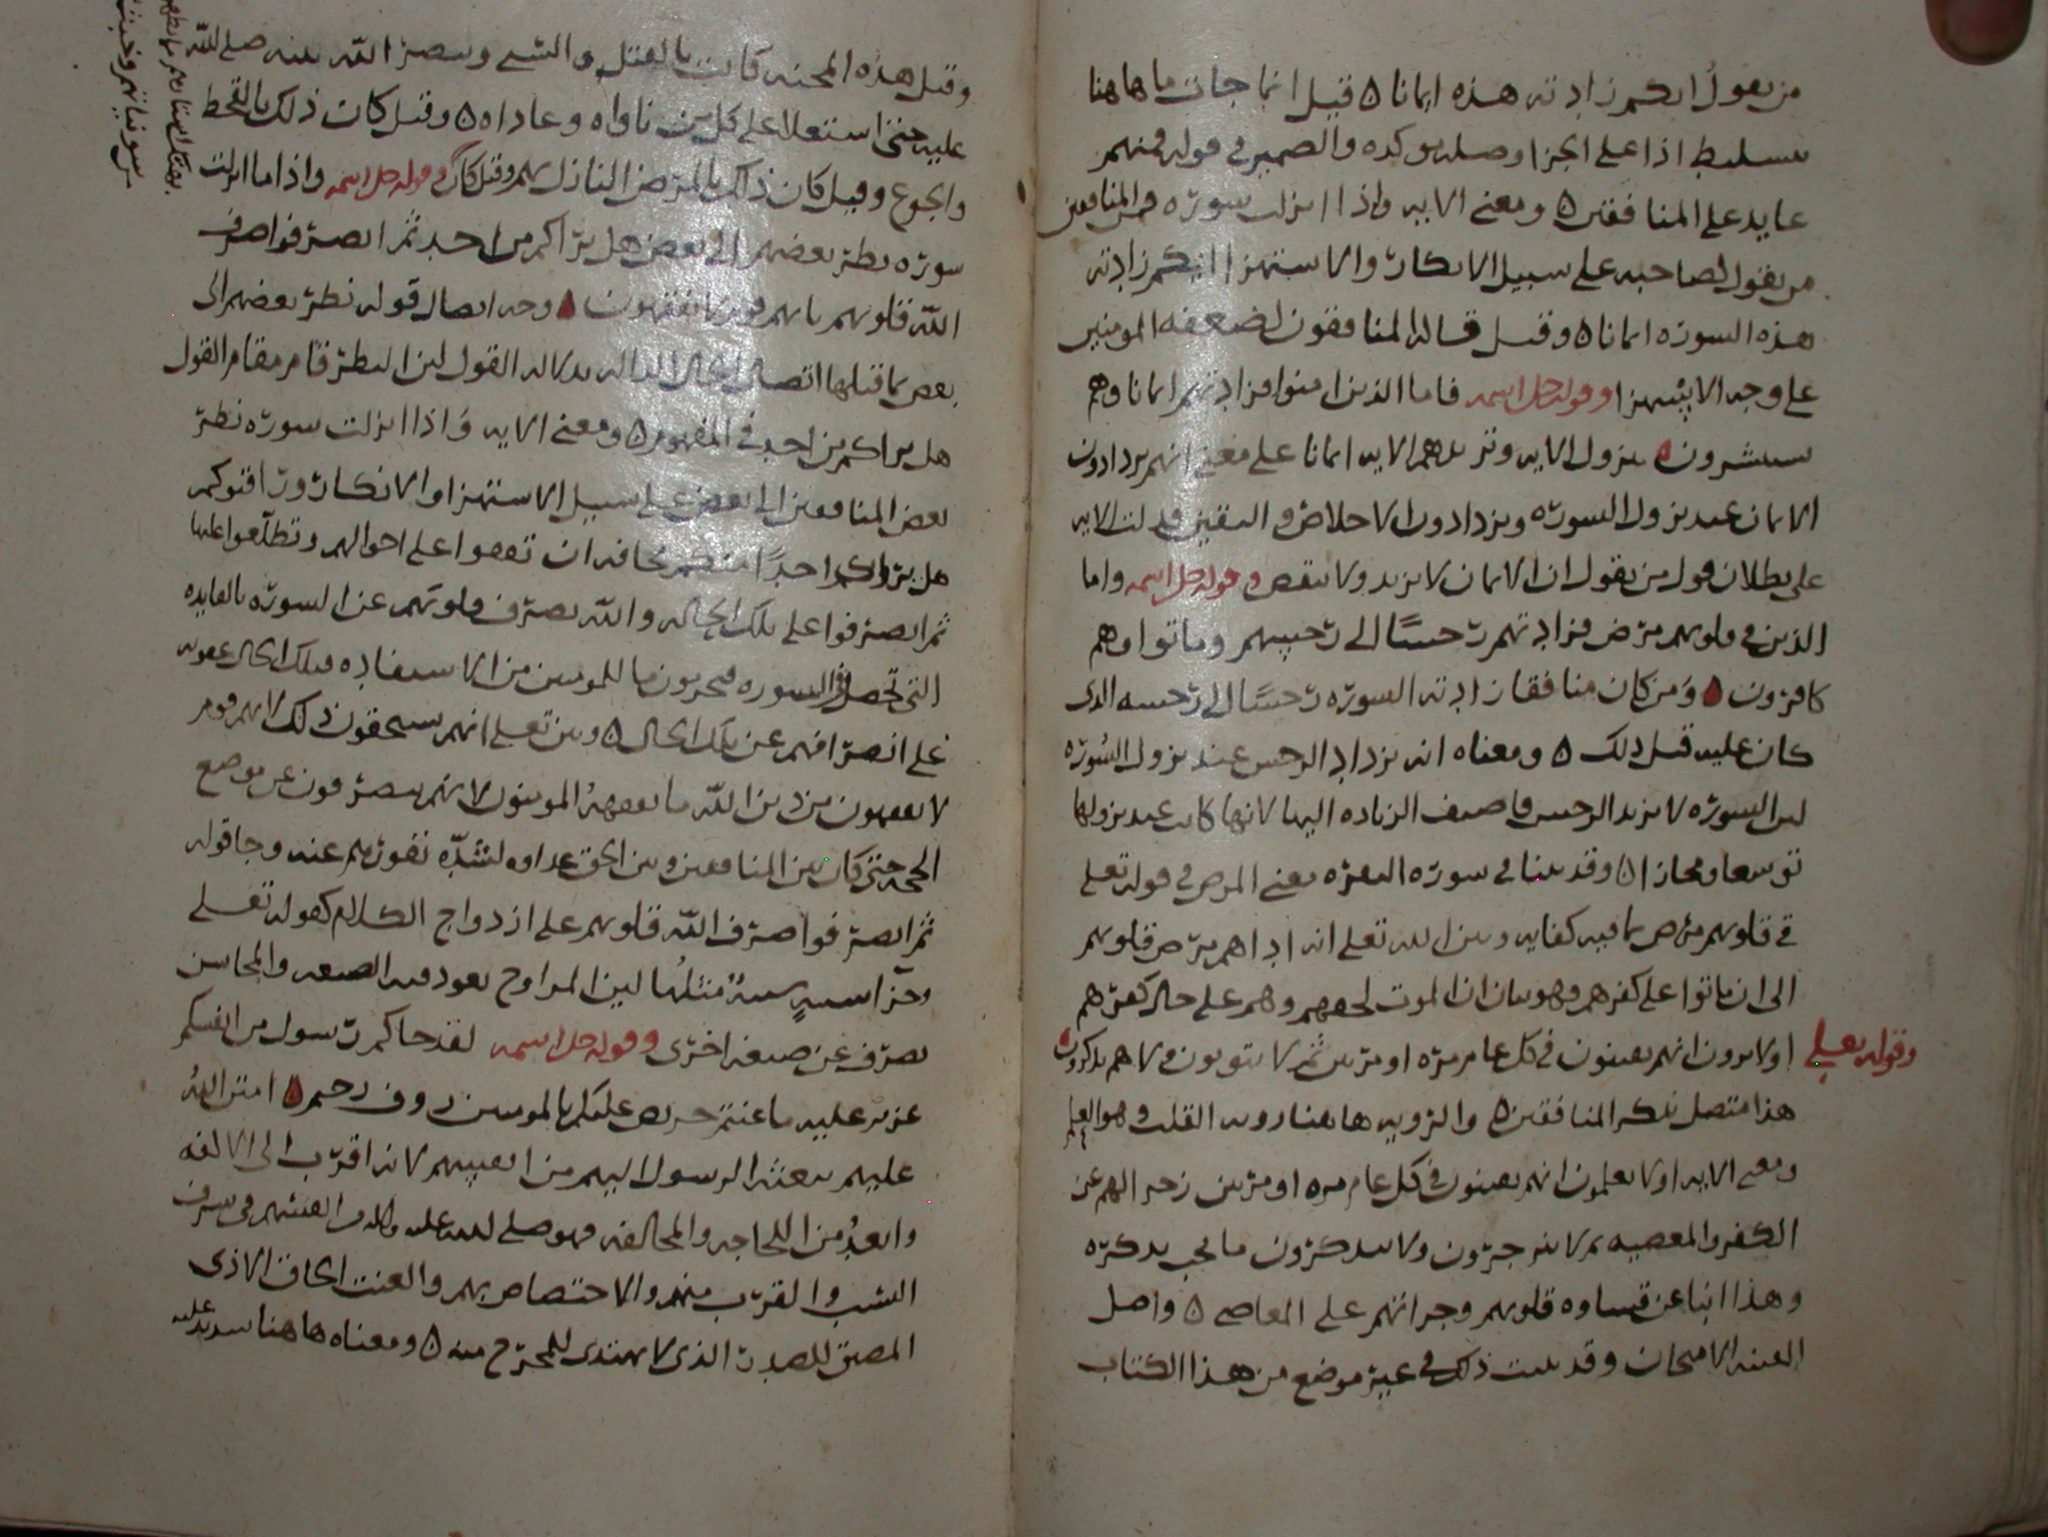 من يقول ايكم زادته هذه ايمانا ٥ قيل انما جات ما هاهنا
لتسليط اذا على الجزا وصله موكده والضمير في قوله فمنهم
عايد على المنافقين ٥ ومعنى الايه واذا ما انزلت سوره فمن المنافقين
من يقول لصاحبه على سبيل الانكار والاستهزا ايكم زادته
هذه السوره ايمانا ٥ وقيل قال المنافقون لضعفه المومنين
على وجه الاستهزا وقوله جل اسمه فاما الذين امنوا فزادتهم ايمانا وهم
يستبشرون ٥ بنزول الايه وتزيدهم الايه ايمانا على معنى انهم يزدادون
الايمان عند نزول السوره ويزدادون الاخلاص واليقين فدلت الايه
على بطلان قول من يقول ان الايمان لا يزيد ولا ينقص وقوله جل اسمه واما
الذين في قلوبهم مرض فزادتهم رجسًا الى رجسهم وماتوا وهم
كافرون ٥ ومن كان منافقا زادته السوره رجسًا الى رجسه الذى
كان عليه قبل ذلك ٥ ومعناه انه يزداد الرجس عند نزول السُوره
لين السوره لا تزيد الرجس فاضيف الزياده اليها لانها كانت عند نزولها
توسعا ومجازا ٥ وقد بينا في سوره البقره معنى المرض في قوله تعلى
في قلوبهم مرض بما فيه كفايه وبين الله تعلى انه اداهم مرض قلوبهم
الى ان ماتوا على كفرهم وهو بيان ان الموت لحقهم وهم على حال كفرهم
وقوله تعلى اولا يرون انهم يفتنون في كل عام مره او مرتين ثم لا يتوبون ولا هم يذكرون ٥
هذا متصل بذكر المنافقين ٥ والرويه هاهنا رويه القلب وهو العلم
ومعنى الايه اولا يعلمون انهم يفتنون في كل عام مره او مرتين زجرا لهم عن
الكفر والمعصيه ثم لا ينزجرون ولا يتذكرون ما يجب تذكره
وهذا انبا عن قساوه قلوبهم وجراتهم على المعاصي ٥ واصل
الفتنه الامتحان وقد بينت ذلك في غير موضع من هذا الكتاب
وقيل هذه المحنه كانت بالقتل والسبي وبنصر الله نبيه صلى الله
عليه حتى استعلا على كل من ناواه وعاداه ٥ وقيل كان ذلك بالقحط
والجوع وقيل كان ذلك بالمرض النازل بهم وقوله جل اسمه واذا ما انزلت
سوره نظر بعضهم الى بعض هل يراكم من احد ثم انصرفوا صرف
الله قلوبهم بانهم قوم لا يفقهون ٥ وجه اتصال قوله نظر بعضهم الى
بعض بما قبلها اتصال الحال الداله بدلاله القول لين النظر قام مقام القول
هل يراكم من احد في المفهوم ٥ ومعنى الايه واذا انزلت سوره نظر
بعض المنافقين الى بعض على سبيل الاستهزا والانكار
هل يراكم احدًا منكم مخافه ان تقفوا على احوالهم وتطلعوا عليها
ثم انصرفوا على تلك الحاله والله يصرف قلوبهم عن السوره بالفايده
التي تحصل في السوره فيحرمون ما للمومنين من الاستفاده فتلك الحال عقوبه
على انصرافهم عن تلك الحال ٥ وبين تعلى انهم يستحقون ذلك لانهم قوم
لا يفقهون من دين الله ما يفقههُ المومنون لانهم ينصرفون عن موضع
الحجه حتى كان بين المنافقين وبين الحق عداوه لشدّه نفورهم عنه وجا قوله
ثم انصرفوا صرف الله قلوبهم على ازدواج الكلام كقوله تعلى
وجزآ سييهٍ سييهٌ مثلُها لين المزاوج يعود فيه الصيغه والمجانس
يصرف عن صيغه اخرى وقوله جل اسمه لقد جاكم رسول من انفسكم
عزيز عليه ما عنتم حريص عليكم بالمومنين روف رحيم ٥ امتن اللهُ
عليهم ببعثه الرسول اليهم من انفسهم لانه اقرب الى الالفه
وابعدُ من اللجاجه والمخالفه فهو صلى الله عليه من انفسهم في شرف
النسب والقرب منهم والاختصاص بهم والعنت الحاق الاذى
المضيق للصدر الذى لا يهتدى للمخرج منه ٥ ومعناه هاهنا شديد عليه